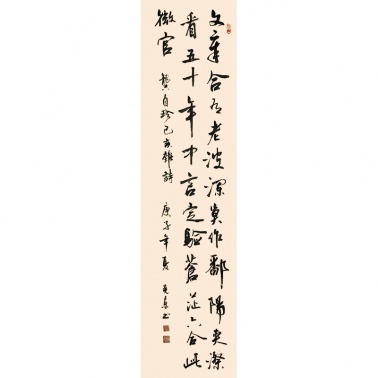 文章合有老波澜莫作鄱阳夹漈
看五十年中言定验苍茫六合此
微官 龚自珍己亥雜詩 庚子年夏